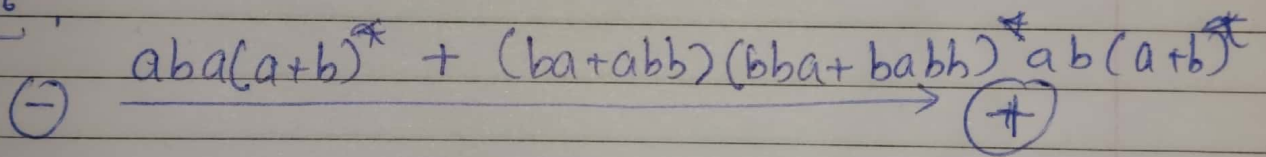 aba(a+b)* + (ba+abb)(bba+babb)*ab(a+b)*
- +